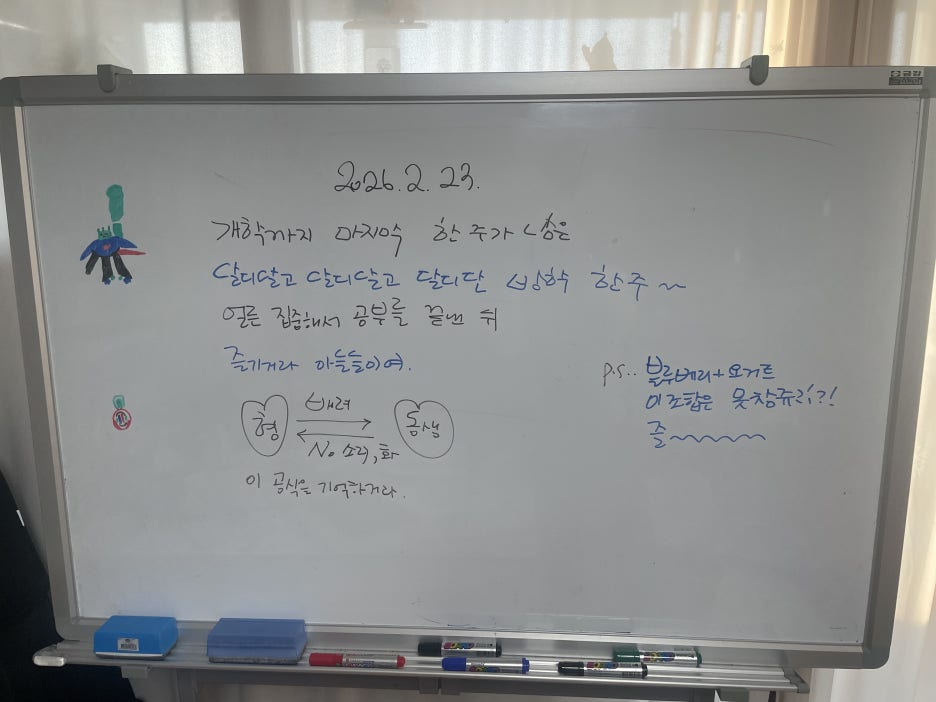 2026.2.23.
개학까지 마지막 한 주가 남은
달디달고 달디달고 달디단 방학 한주~
얼른 집중해서 공부를 끝낸 뒤
즐기거라 아늘들이여.
형 배려 동생
No 소리, 화
이 공식을 기억하거라.
p.s.. 블루베리+요거트
이 조합은 못참쥬리?!
즐~~~~~
금강